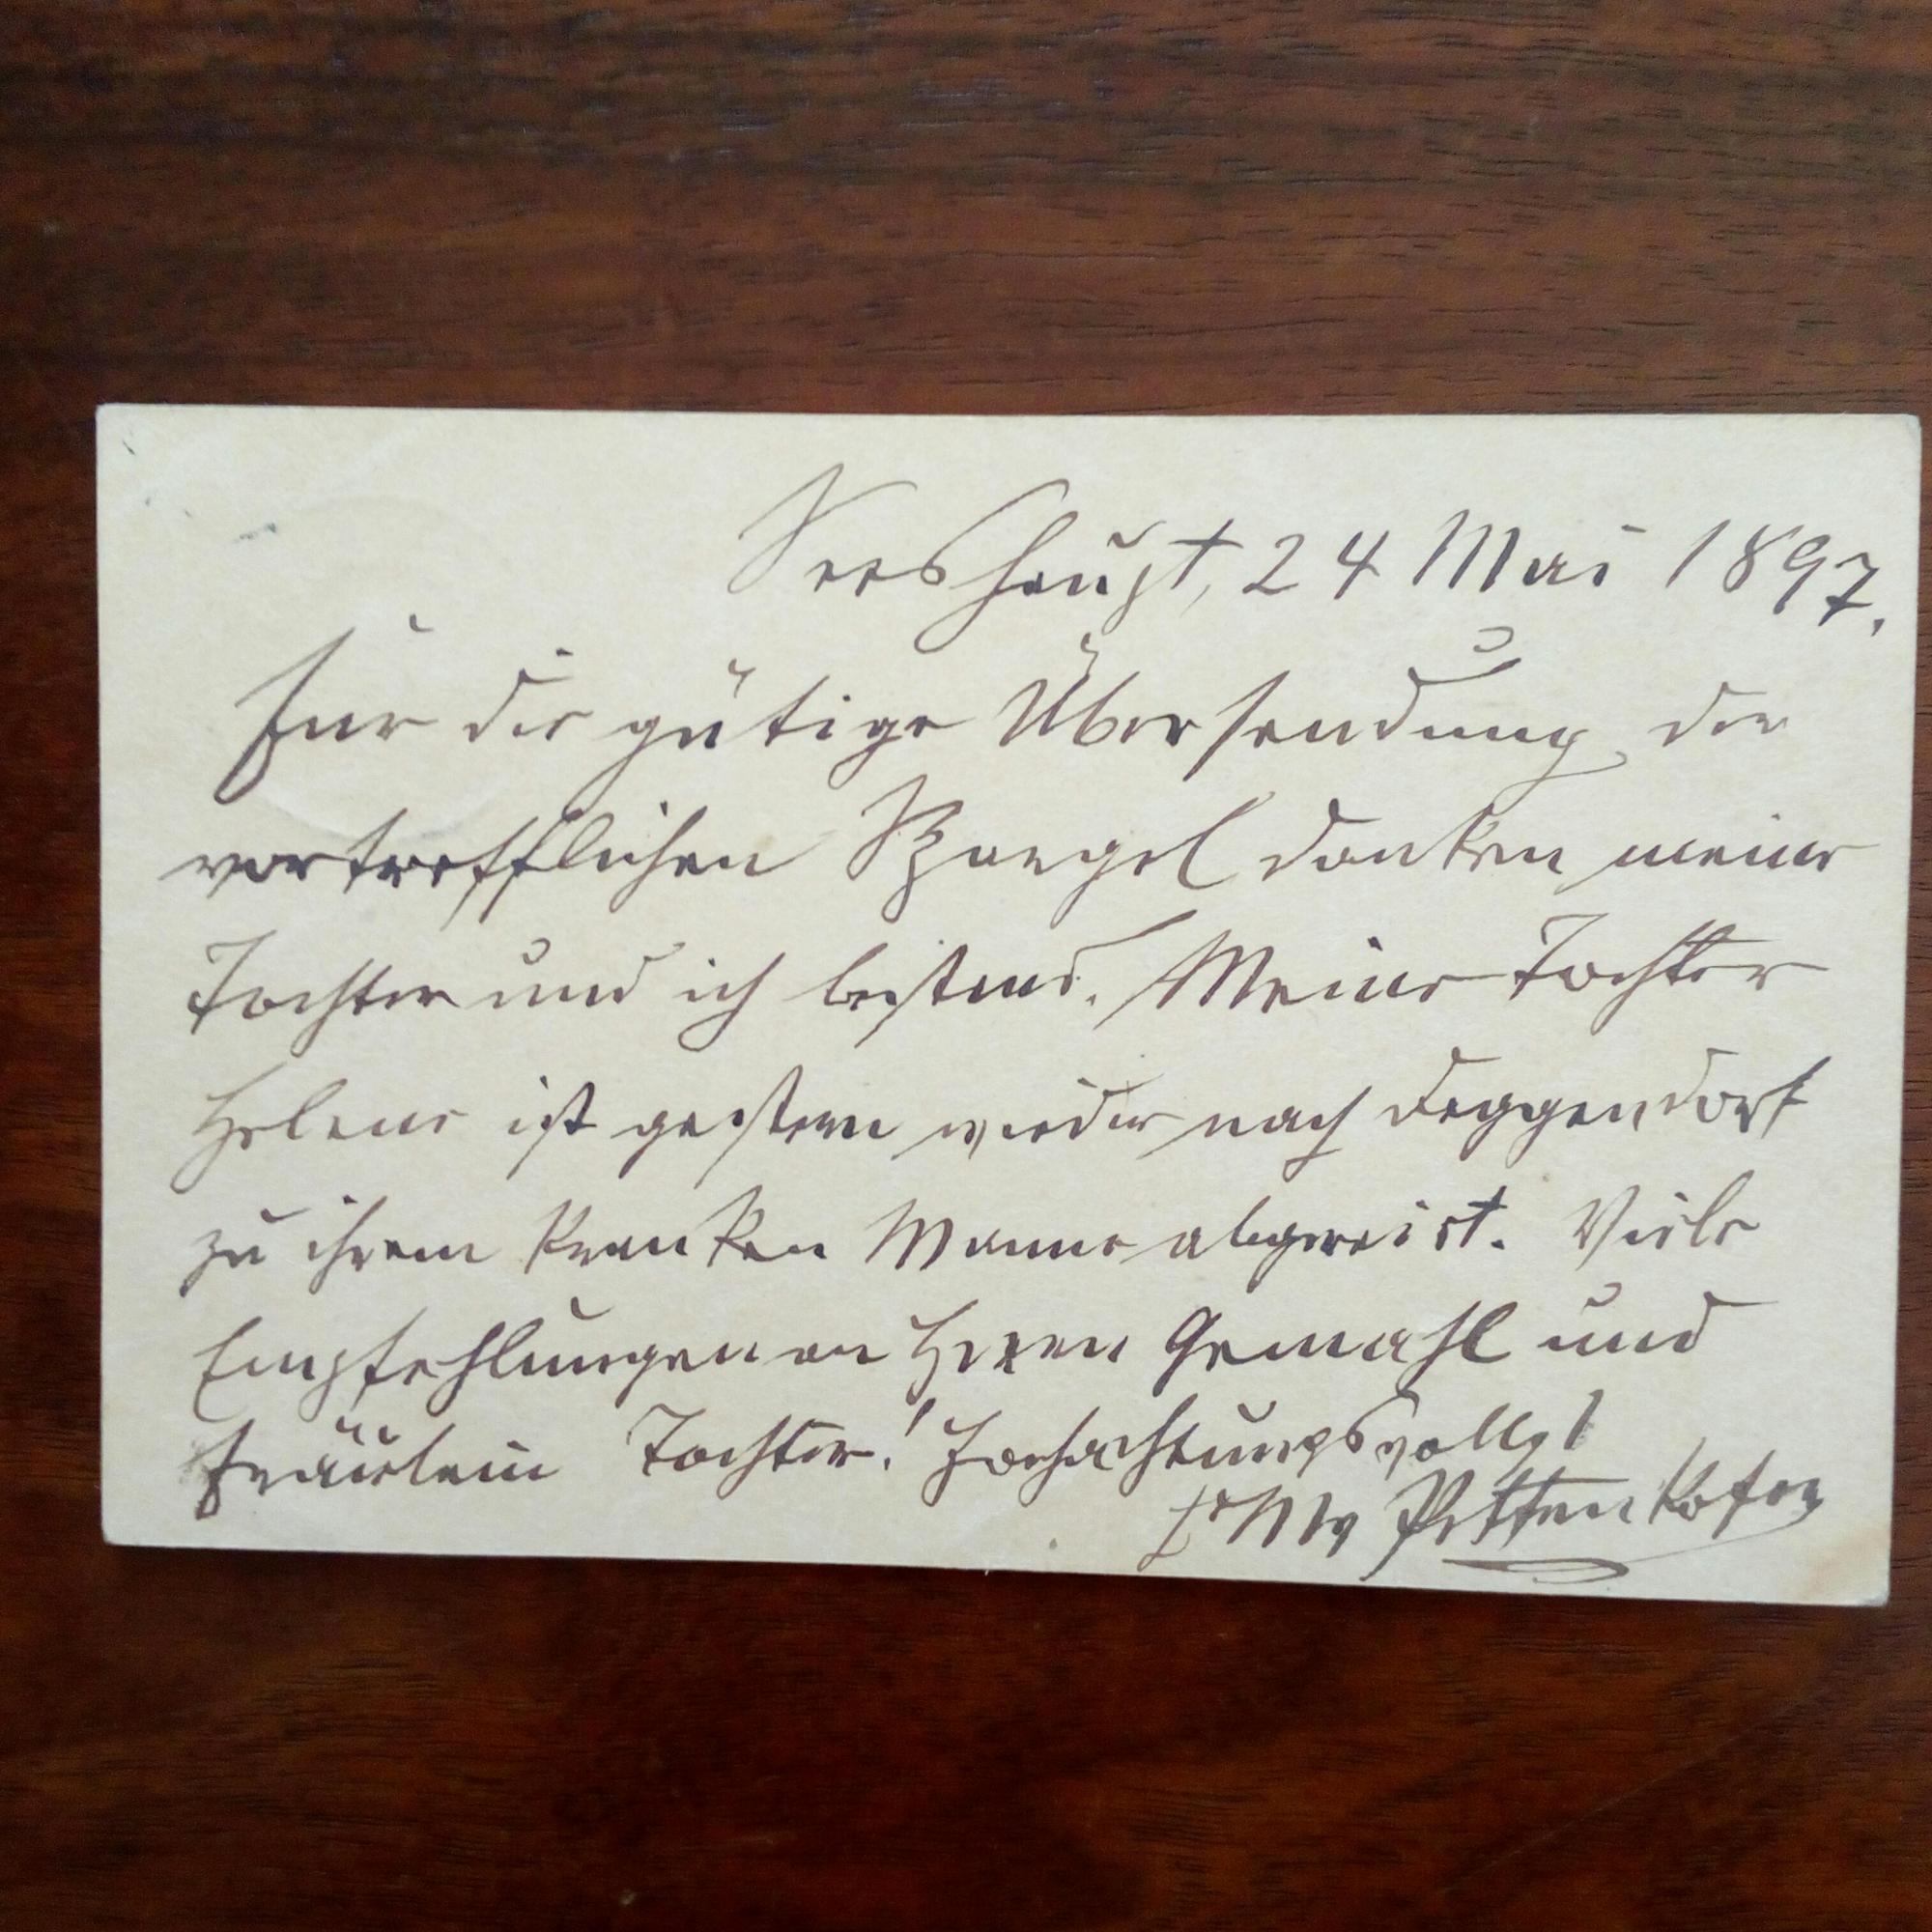 Seeshaupt, 24 Mai 1897.
Für die gütige Übersendung der
vortrefflichen Spargel danken meine
Tochter und ich bestens. Meine Tochter
Helene ist gestern wieder nach Deggendorf
zu ihrem kranken Manne abgereist. Viele
Empfehlungen an Herrn Gemahl und
Fräulein Tochter! Hochachtungsvollst
Dr M v Pettenkofer